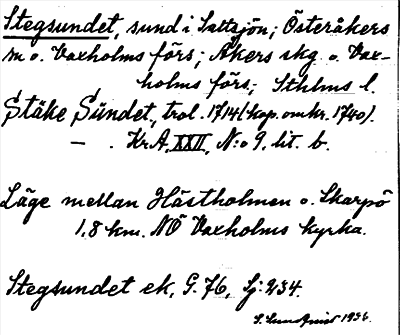 Stegsundet, sund i Saltsjön; Österåkers
sn o. Vaxholms förs; Åkers skg o. Vax-
holms förs; Sthlms l.
Stäke Sündet, trol. 1714 (kop. omkr. 1740).
— . Kr A, XXII, N:o 9, lit. b.
Läge mellan Hästholmen o. Skarpö
1,8 km. NÖ Vaxholms kyrka.
Stegsundet ek, G. 76, Sj: 234.
S. Sundqvist 1936.